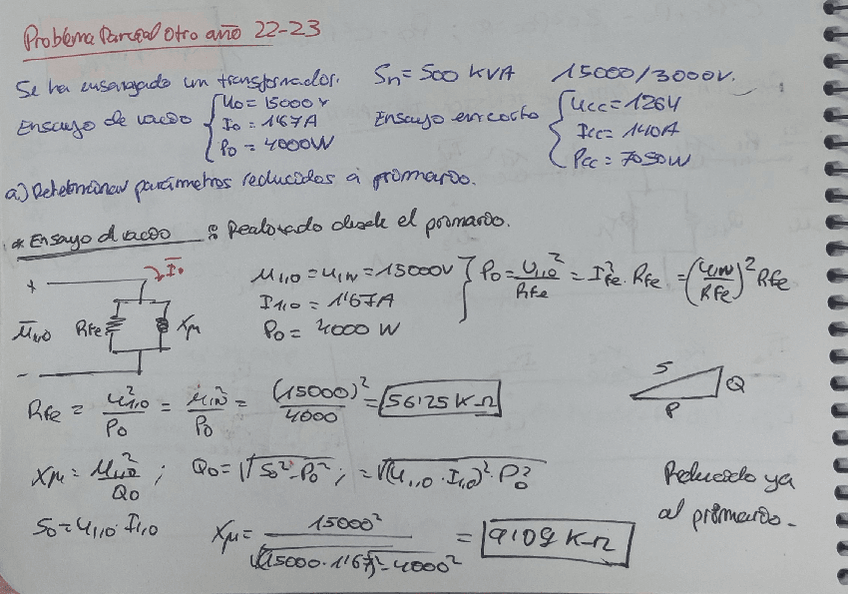 Problema Parcial Otro año 22-23
Se ha ensayado un transformador. Sn = 500 KVA 15000/3000V.
Ensayo de vacío { U0 = 15000 V Ensayo en corto { Ucc = 126V
I0 = 1'67A Icc = 140A
P0 = 4000W Pcc = 7050W
a) Determinar parámetros reducidos a primario.
* Ensayo d vacío : Realizado desde el primario.
I0
+
U1,0 RFe Xμ
-
U1,0 = U1N = 15000V } P0 = U1,0² / RFe = IFe² · RFe = (U1N / RFe)² RFe
I1,0 = 1'67A
P0 = 4000 W
RFe = U1,0² / P0 = U1N² / P0 = (15000)² / 4000 = 56'25 K Ω
S Q P
Xμ = U1,0² / Q0 ; Q0 = √(S0² - P0²) ; = √((U1,0 · I1,0)² - P0²)
Reducido ya
al primario.
S0 = U1,0 · I1,0 Xμ = 15000² / √((15000 · 1'67)² - 4000²) = 9'109 K Ω